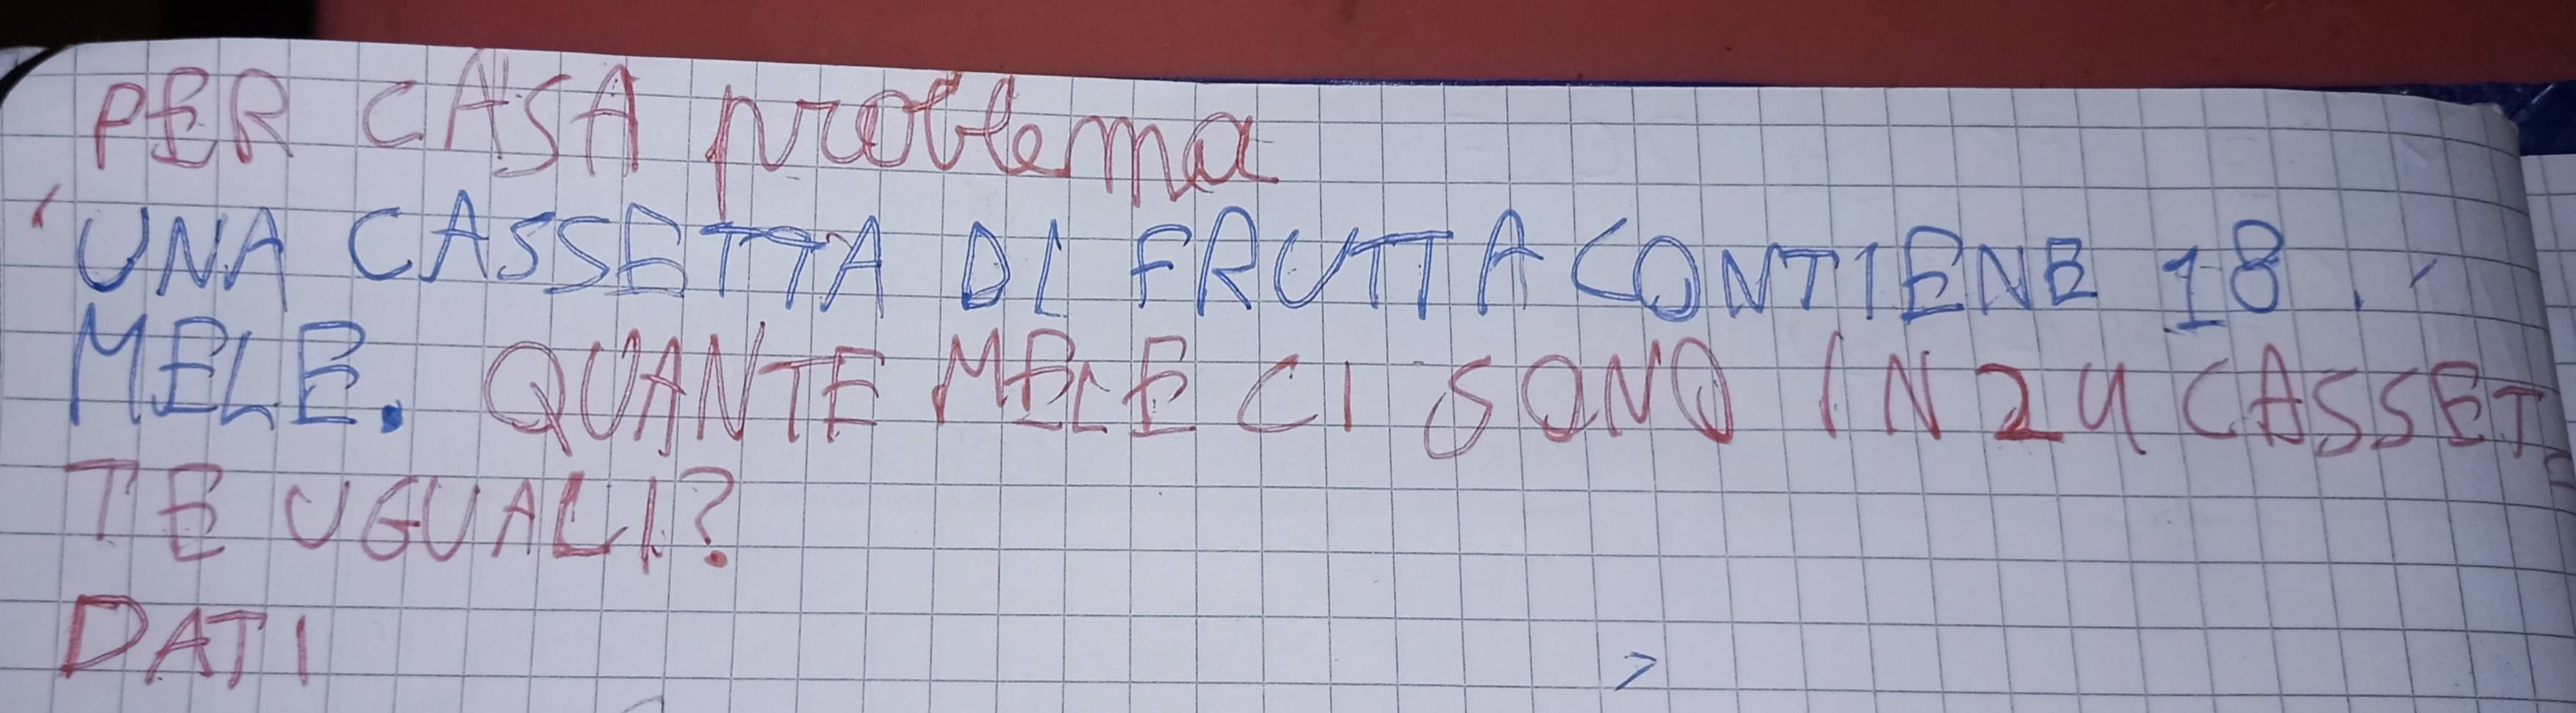 PER CASA problema
UNA CASSETTA DI FRUTTA CONTIENE 18
MELE. QUANTE MELE CI SONO IN 24 CASSET
TE UGUALI?
DATI